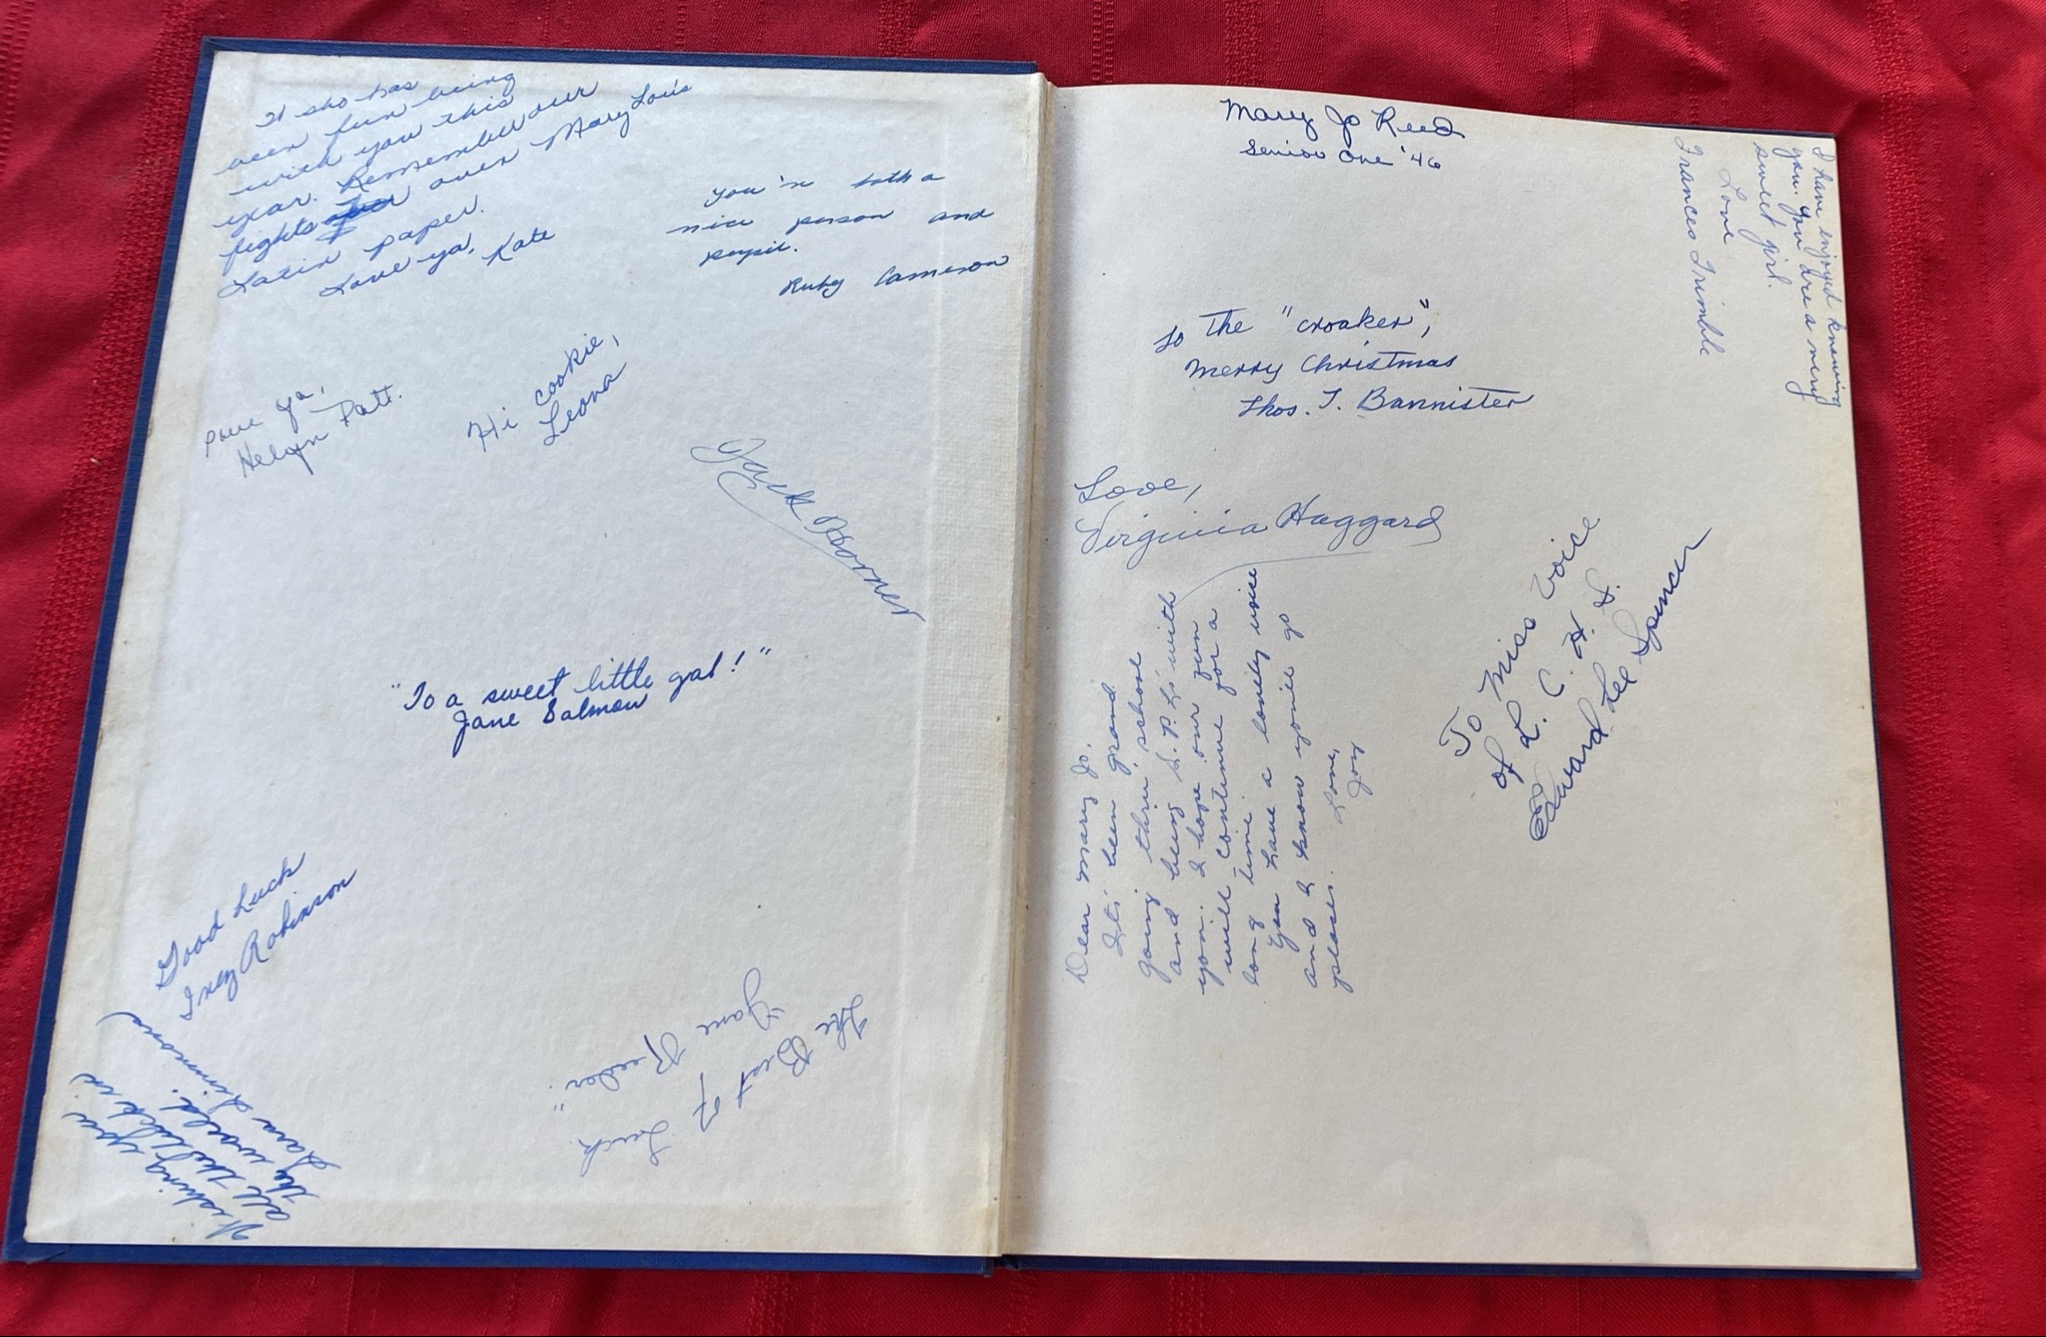 It sho has
been fun being
with you this
year. Remember our
fights over Mary Lou's
Latin paper.
Love ya, Kate
You're both a
nice person and
pupil.
Ruby Cameron
Love ya,
Helyn Patt.
Hi cookie,
Leona
Jack Horner
"To a sweet little gal!"
Jane Salmon
Good Luck
Inez Robinson
Wishing you
all the luck in
the world.
Sara Simmons
The Best of Luck
"Jane Reeder."
Mary Jo Reed
Senior One '46
I have enjoyed knowing
you. You are a very
sweet girl.
Love
Frances Trimble
To the "croaker",
Merry Christmas
Thos. T. Bannister
Love,
Virginia Haggard
Dear Mary Jo,
It's been grand
going thru school
and being S.P.L.'s with
you. I hope our fun
will continue for a
long time.
You have a lovely voice
and I know you'll go
places.
Love,
Joy
To Miss Voice
of L. C. H. S.
Edward Lee Spencer